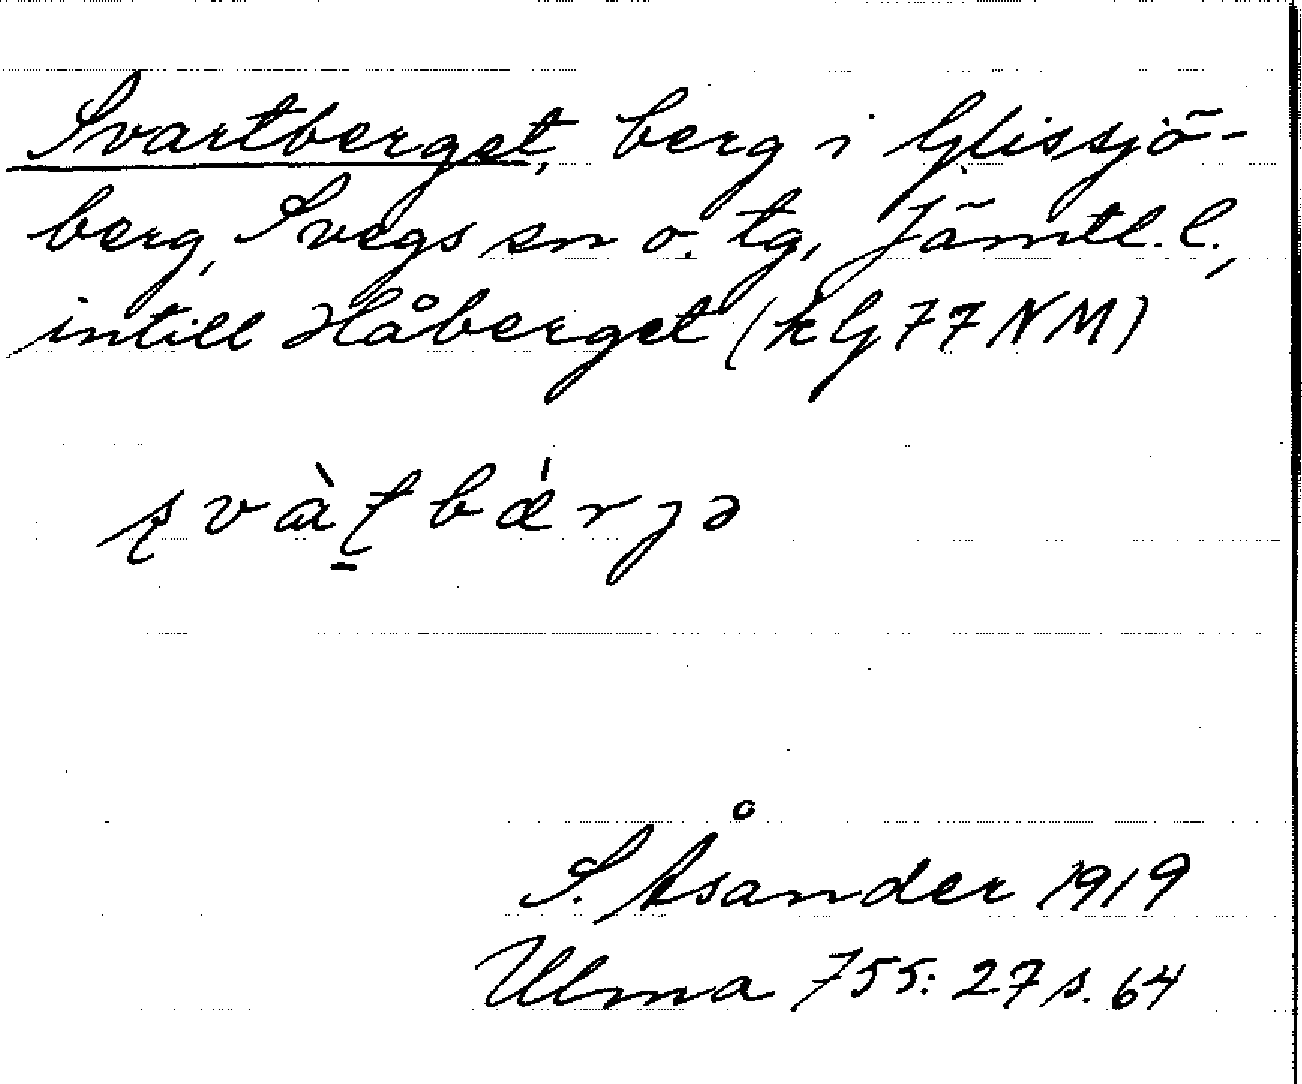 Svartberget, berg i Glissjö-
berg, Svegs sn o. tg, Jämtl. l.,
intill Håberget (kG77NM)
ʂvàʈbǽrɟə
S. Åsander 1919
Ulma 755: 27 s. 64